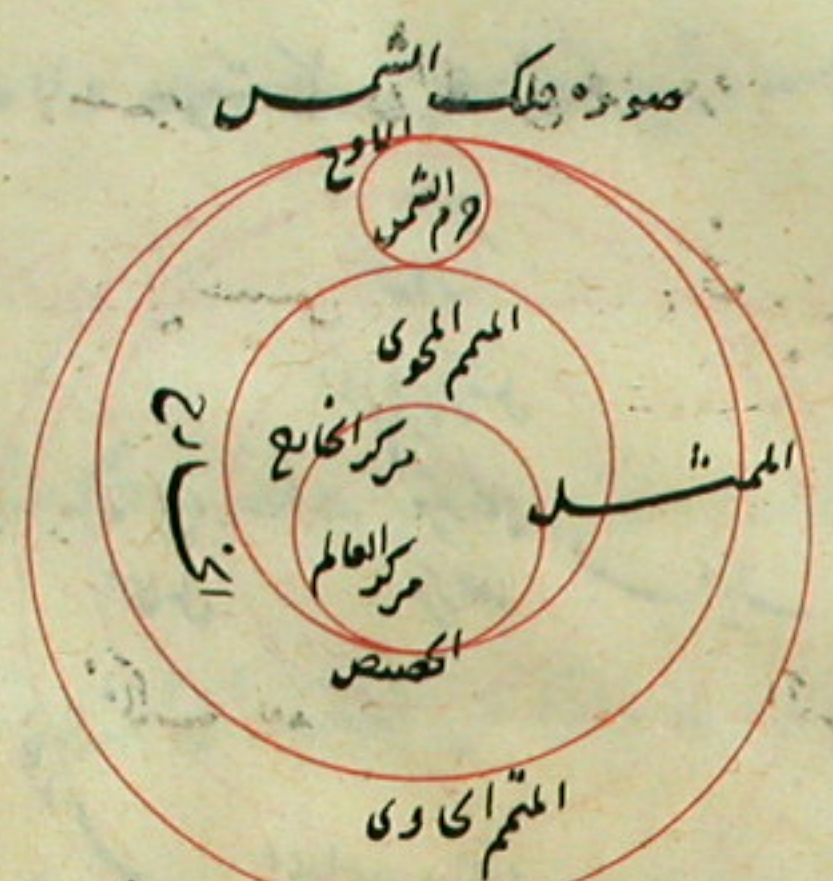 صورة فلك الشمس
الاوج
جرم الشمس
المتمم المحوى
مركز الخارج
الممثل
الخارج
مركز العالم
الحضيض
المتمم الحاوى